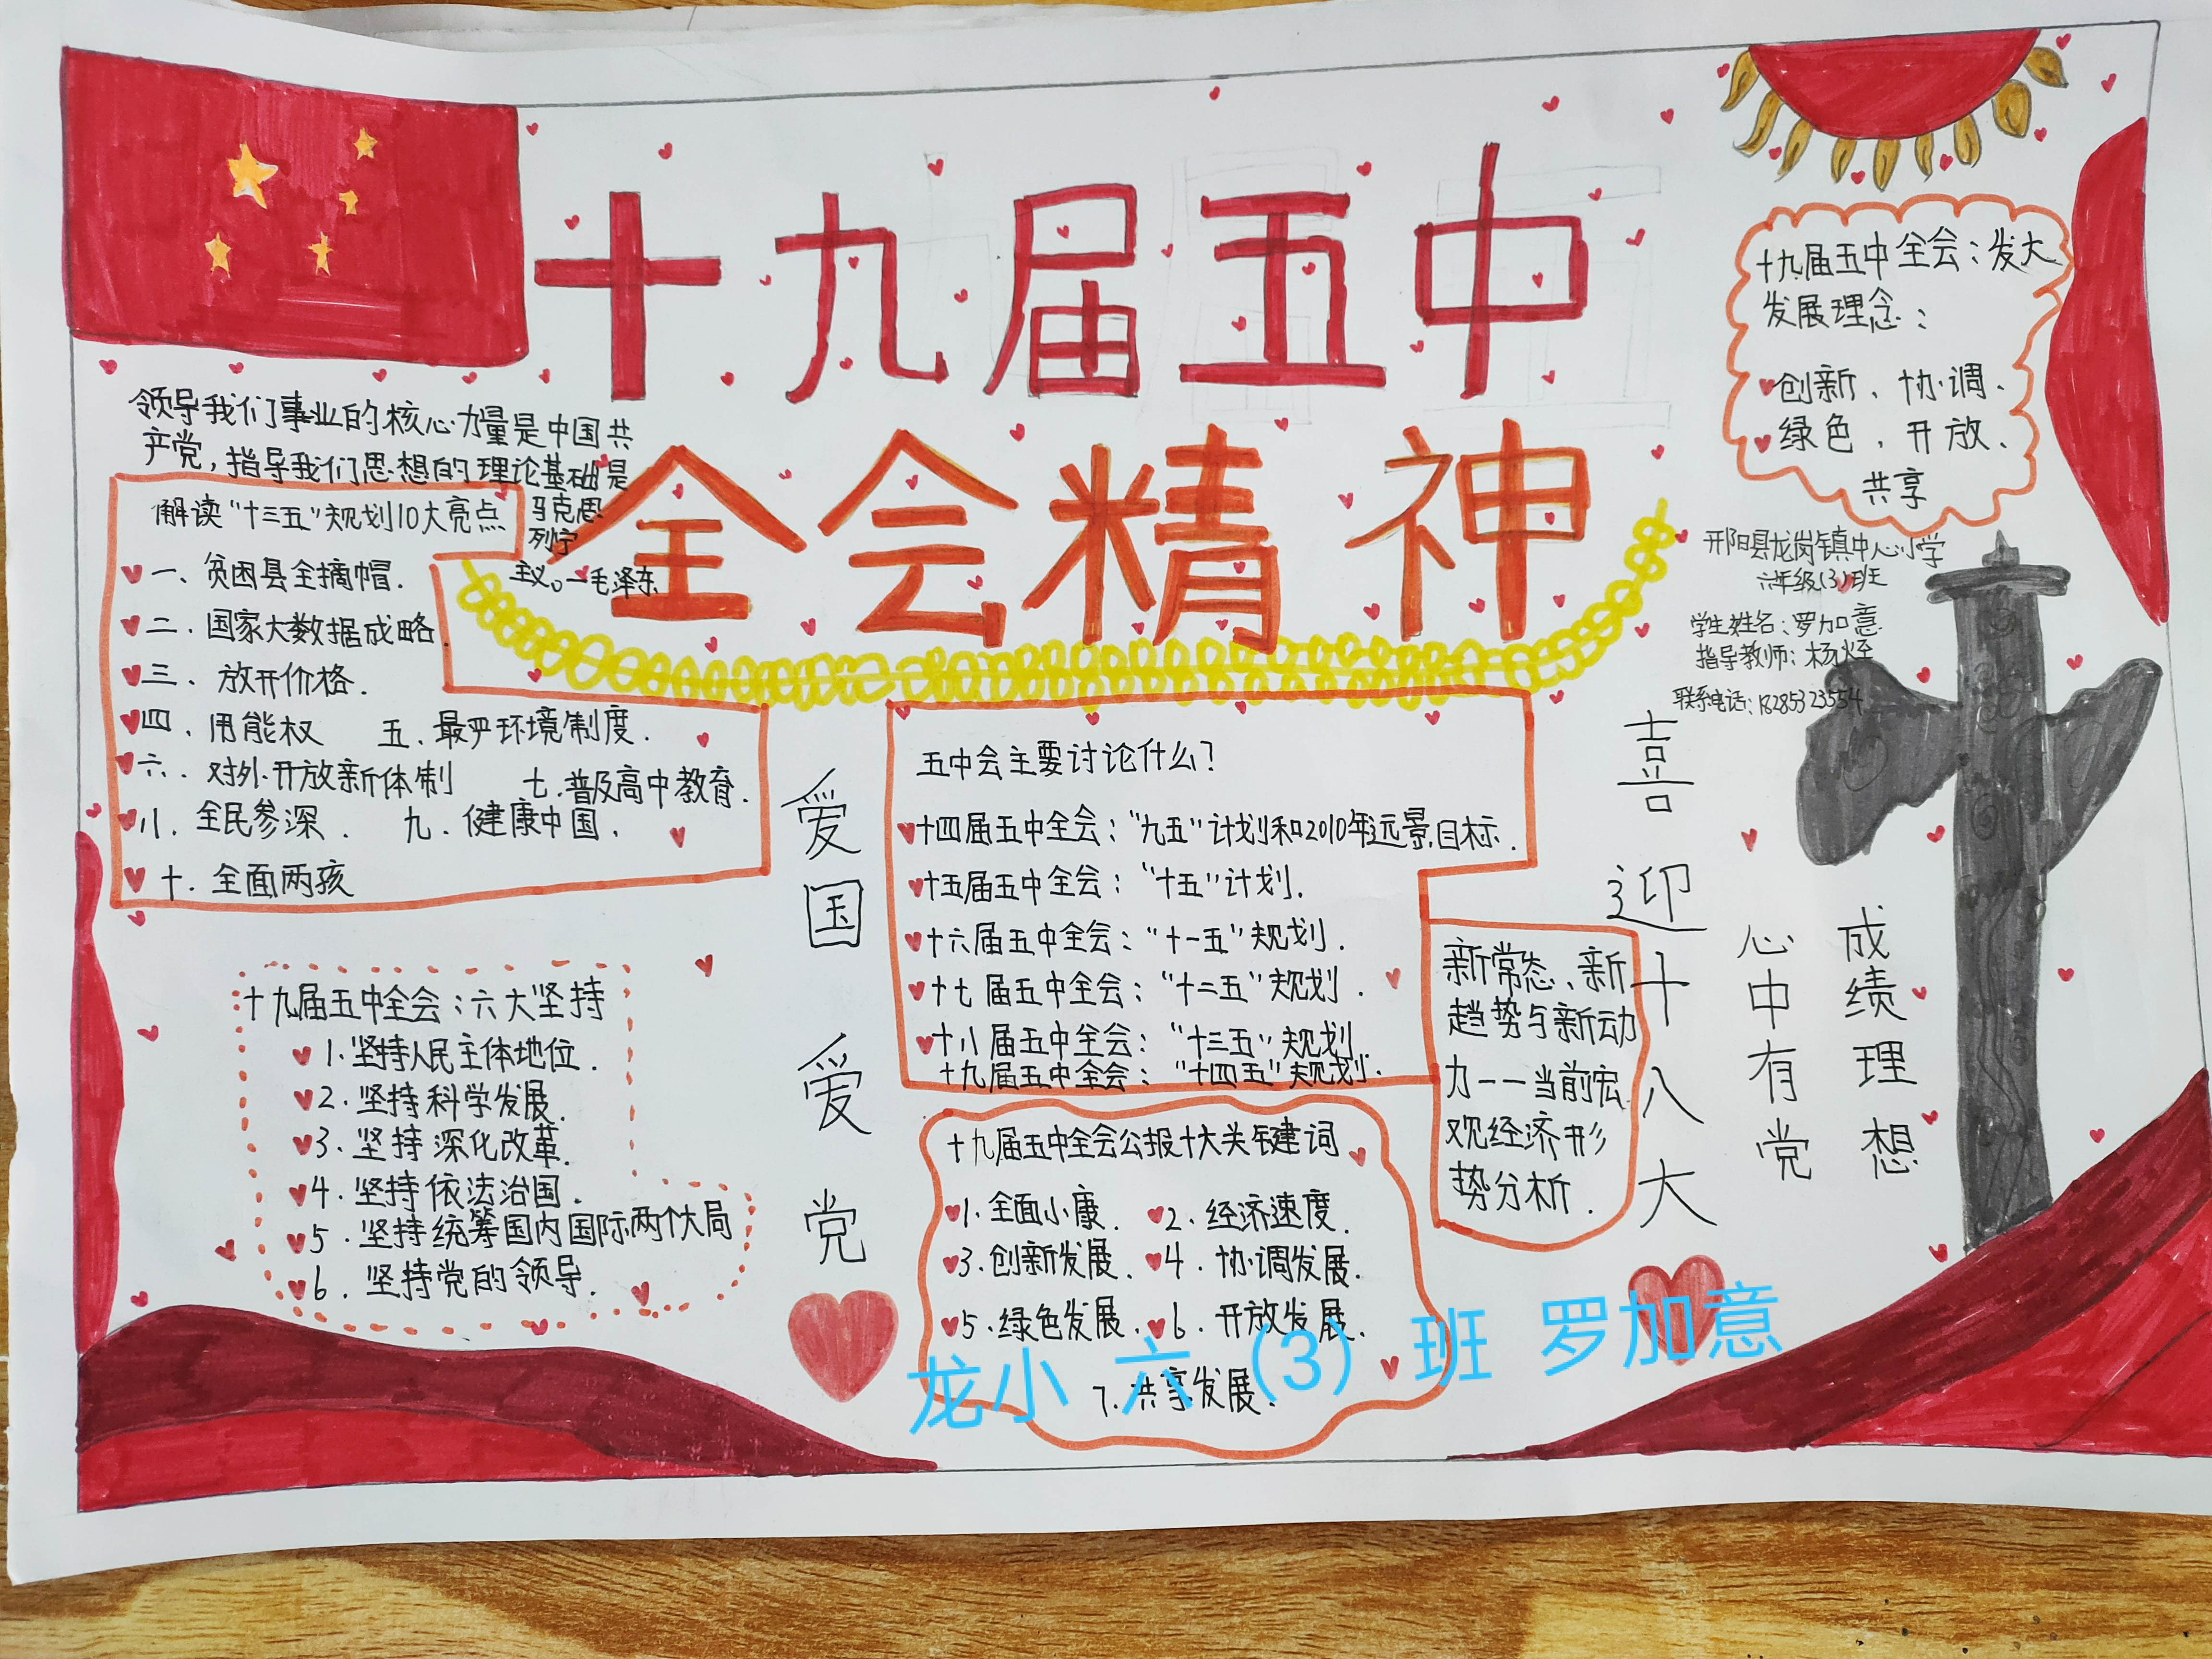 十九届五中
全会精神
领导我们事业的核心力量是中国共
产党，指导我们思想的理论基础是
马克思
列宁
主义。一毛泽东
解读“十三五”规划10大亮点
一、贫困县全摘帽.
二．国家大数据成略.
三、放开价格.
四、用能权 五、最严环境制度.
六．对外开放新体制 七.普及高中教育.
八．全民参深． 九．健康中国．
十．全面两孩
十九届五中全会：六大坚持
1.坚持人民主体地位.
2.坚持科学发展.
3.坚持深化改革.
4.坚持依法治国.
5.坚持统筹国内国际两个大局
6．坚持党的领导.
爱国爱党
五中会主要讨论什么？
十四届五中全会：“九五”计划和2010年远景目标．
十五届五中全会：“十五”计划.
十六届五中全会：“十一五”规划．
十七届五中全会：“十二五”规划．
十八届五中全会：“十三五”规划.
十九届五中全会：“十四五”规划.
新常态、新
趋势与新动
力——当前宏
观经济形
势分析．
十九届五中全会公报十大关键词
1.全面小康． 2．经济速度．
3.创新发展． 4．协调发展.
5.绿色发展． 6．开放发展.
7．共享发展.
十九届五中全会：发大
发展理念：
创新、协调、
绿色、开放、
共享
开阳县龙岗镇中心小学
六年级(3)班
学生姓名：罗加意
指导教师：杨烃
联系电话：18285323554
喜迎十八大
心中有党
成绩理想
龙小 六（3）班 罗加意